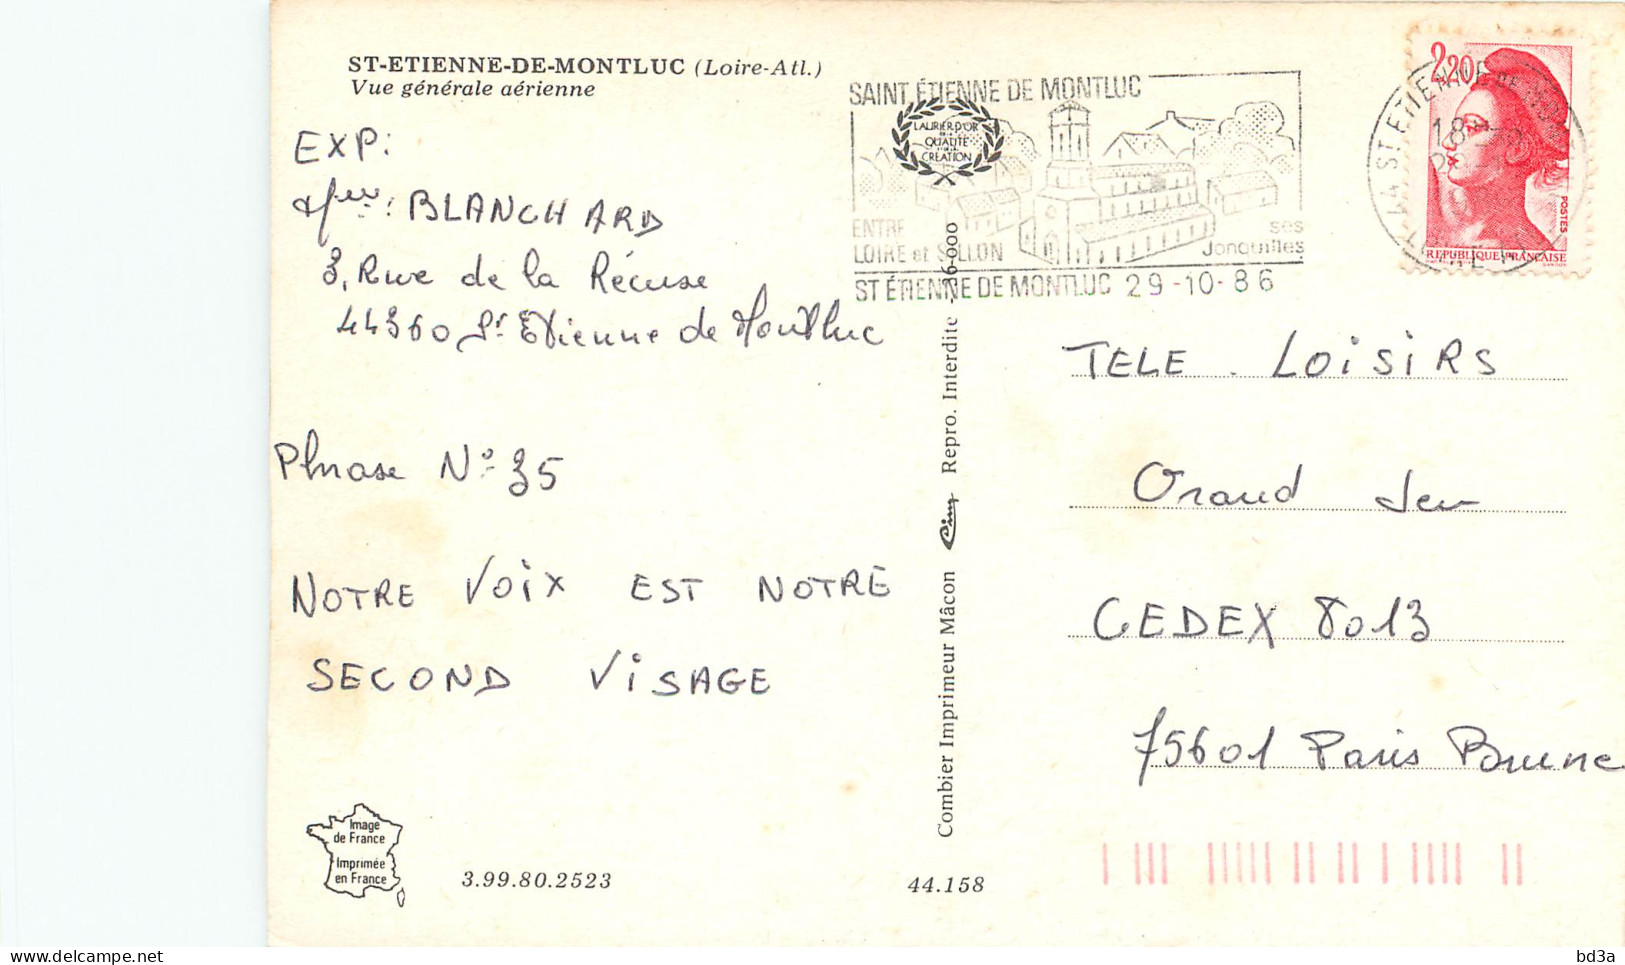 ST-ETIENNE-DE-MONTLUC (Loire-Atl.)
Vue générale aérienne
EXP:
BLANCHARD
3, Rue de la Récuse
44360 St Etienne de Montluc
Phrase N° 35
NOTRE VOIX EST NOTRE
SECOND VISAGE
Image
de France
Imprimée
en France
3.99.80.2523
44.158
Combier Imprimeur Mâcon Cim Repro. Interdite - 26-000
LAURIER D'OR
DE LA
QUALITÉ
ET DE LA
CRÉATION
SAINT ÉTIENNE DE MONTLUC
ENTRE
LOIRE et SILLON
ses
Jonquilles
ST ÉTIENNE DE MONTLUC 29-10-86
44 ST ETIENNE DE
18H
2,20
POSTES
REPUBLIQUE FRANÇAISE
TELE. LOISIRS
Grand Jeu
CEDEX 8013
75601 Paris Brune
bd3a